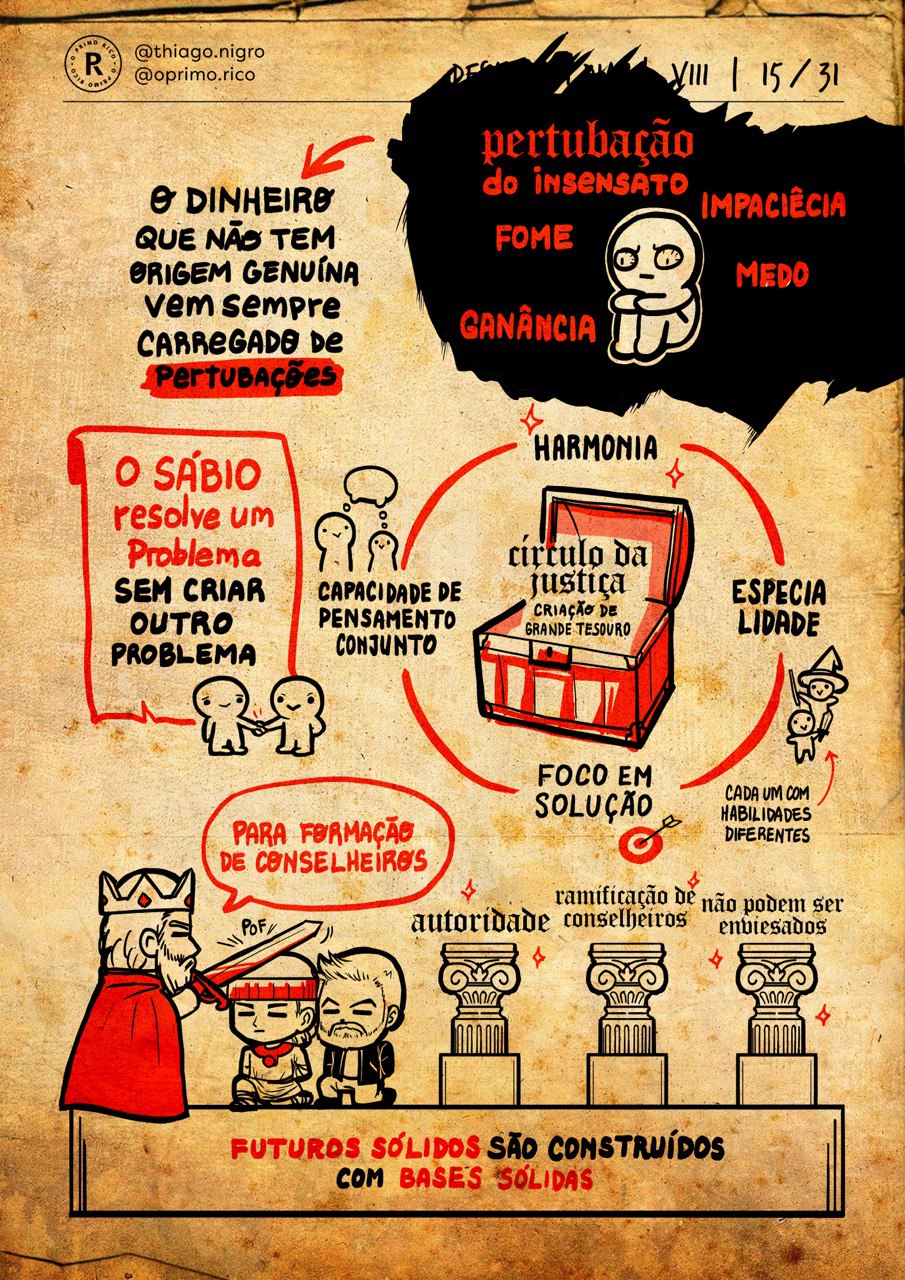 R
O PRIMO RICO
@thiago.nigro
@oprimo.rico
VIII | 15/31
pertubação
do INSENSATO
IMPACIÊCIA
FOME
MEDO
GANÂNCIA
O DINHEIRO
QUE NÃO TEM
ORIGEM GENUÍNA
Vem sempre
CARREGADO DE
PERTUBAÇÕES
O SÁBIO
resolve um
Problema
SEM CRIAR
OUTRO
PROBLEMA
HARMONIA
CAPACIDADE DE
PENSAMENTO
CONJUNTO
círculo da
justiça
CRIAÇÃO DE
GRANDE TESOURO
ESPECIA
LIDADE
FOCO EM
SOLUÇÃO
CADA UM COM
HABILIDADES
DIFERENTES
PARA FORMAÇÃO
DE CONSELHEIROS
POF!
autoridade
ramificação de
conselheiros
não podem ser
enviesados
FUTUROS SÓLIDOS SÃO CONSTRUÍDOS
COM BASES SÓLIDAS